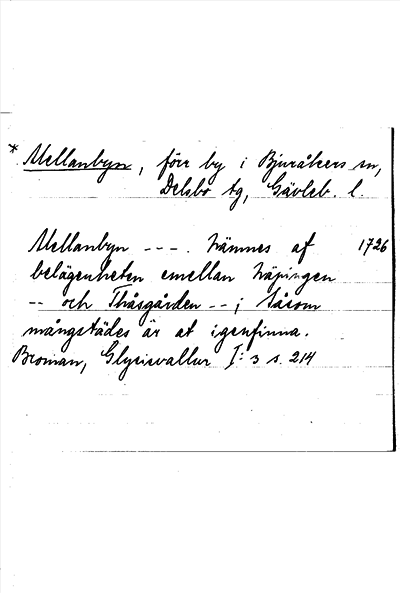 * Mellanbyn, förr by i Bjuråkers sn,
Delsbo tg, Gävleb. l.
Mellanbyn --- . nämnes af 1726
belägenheten emellan Näpingen
-- och Thåsgården --; såsom
mångstädes är at igenfinna.
Broman, Glysisvallur I: 3 s. 214